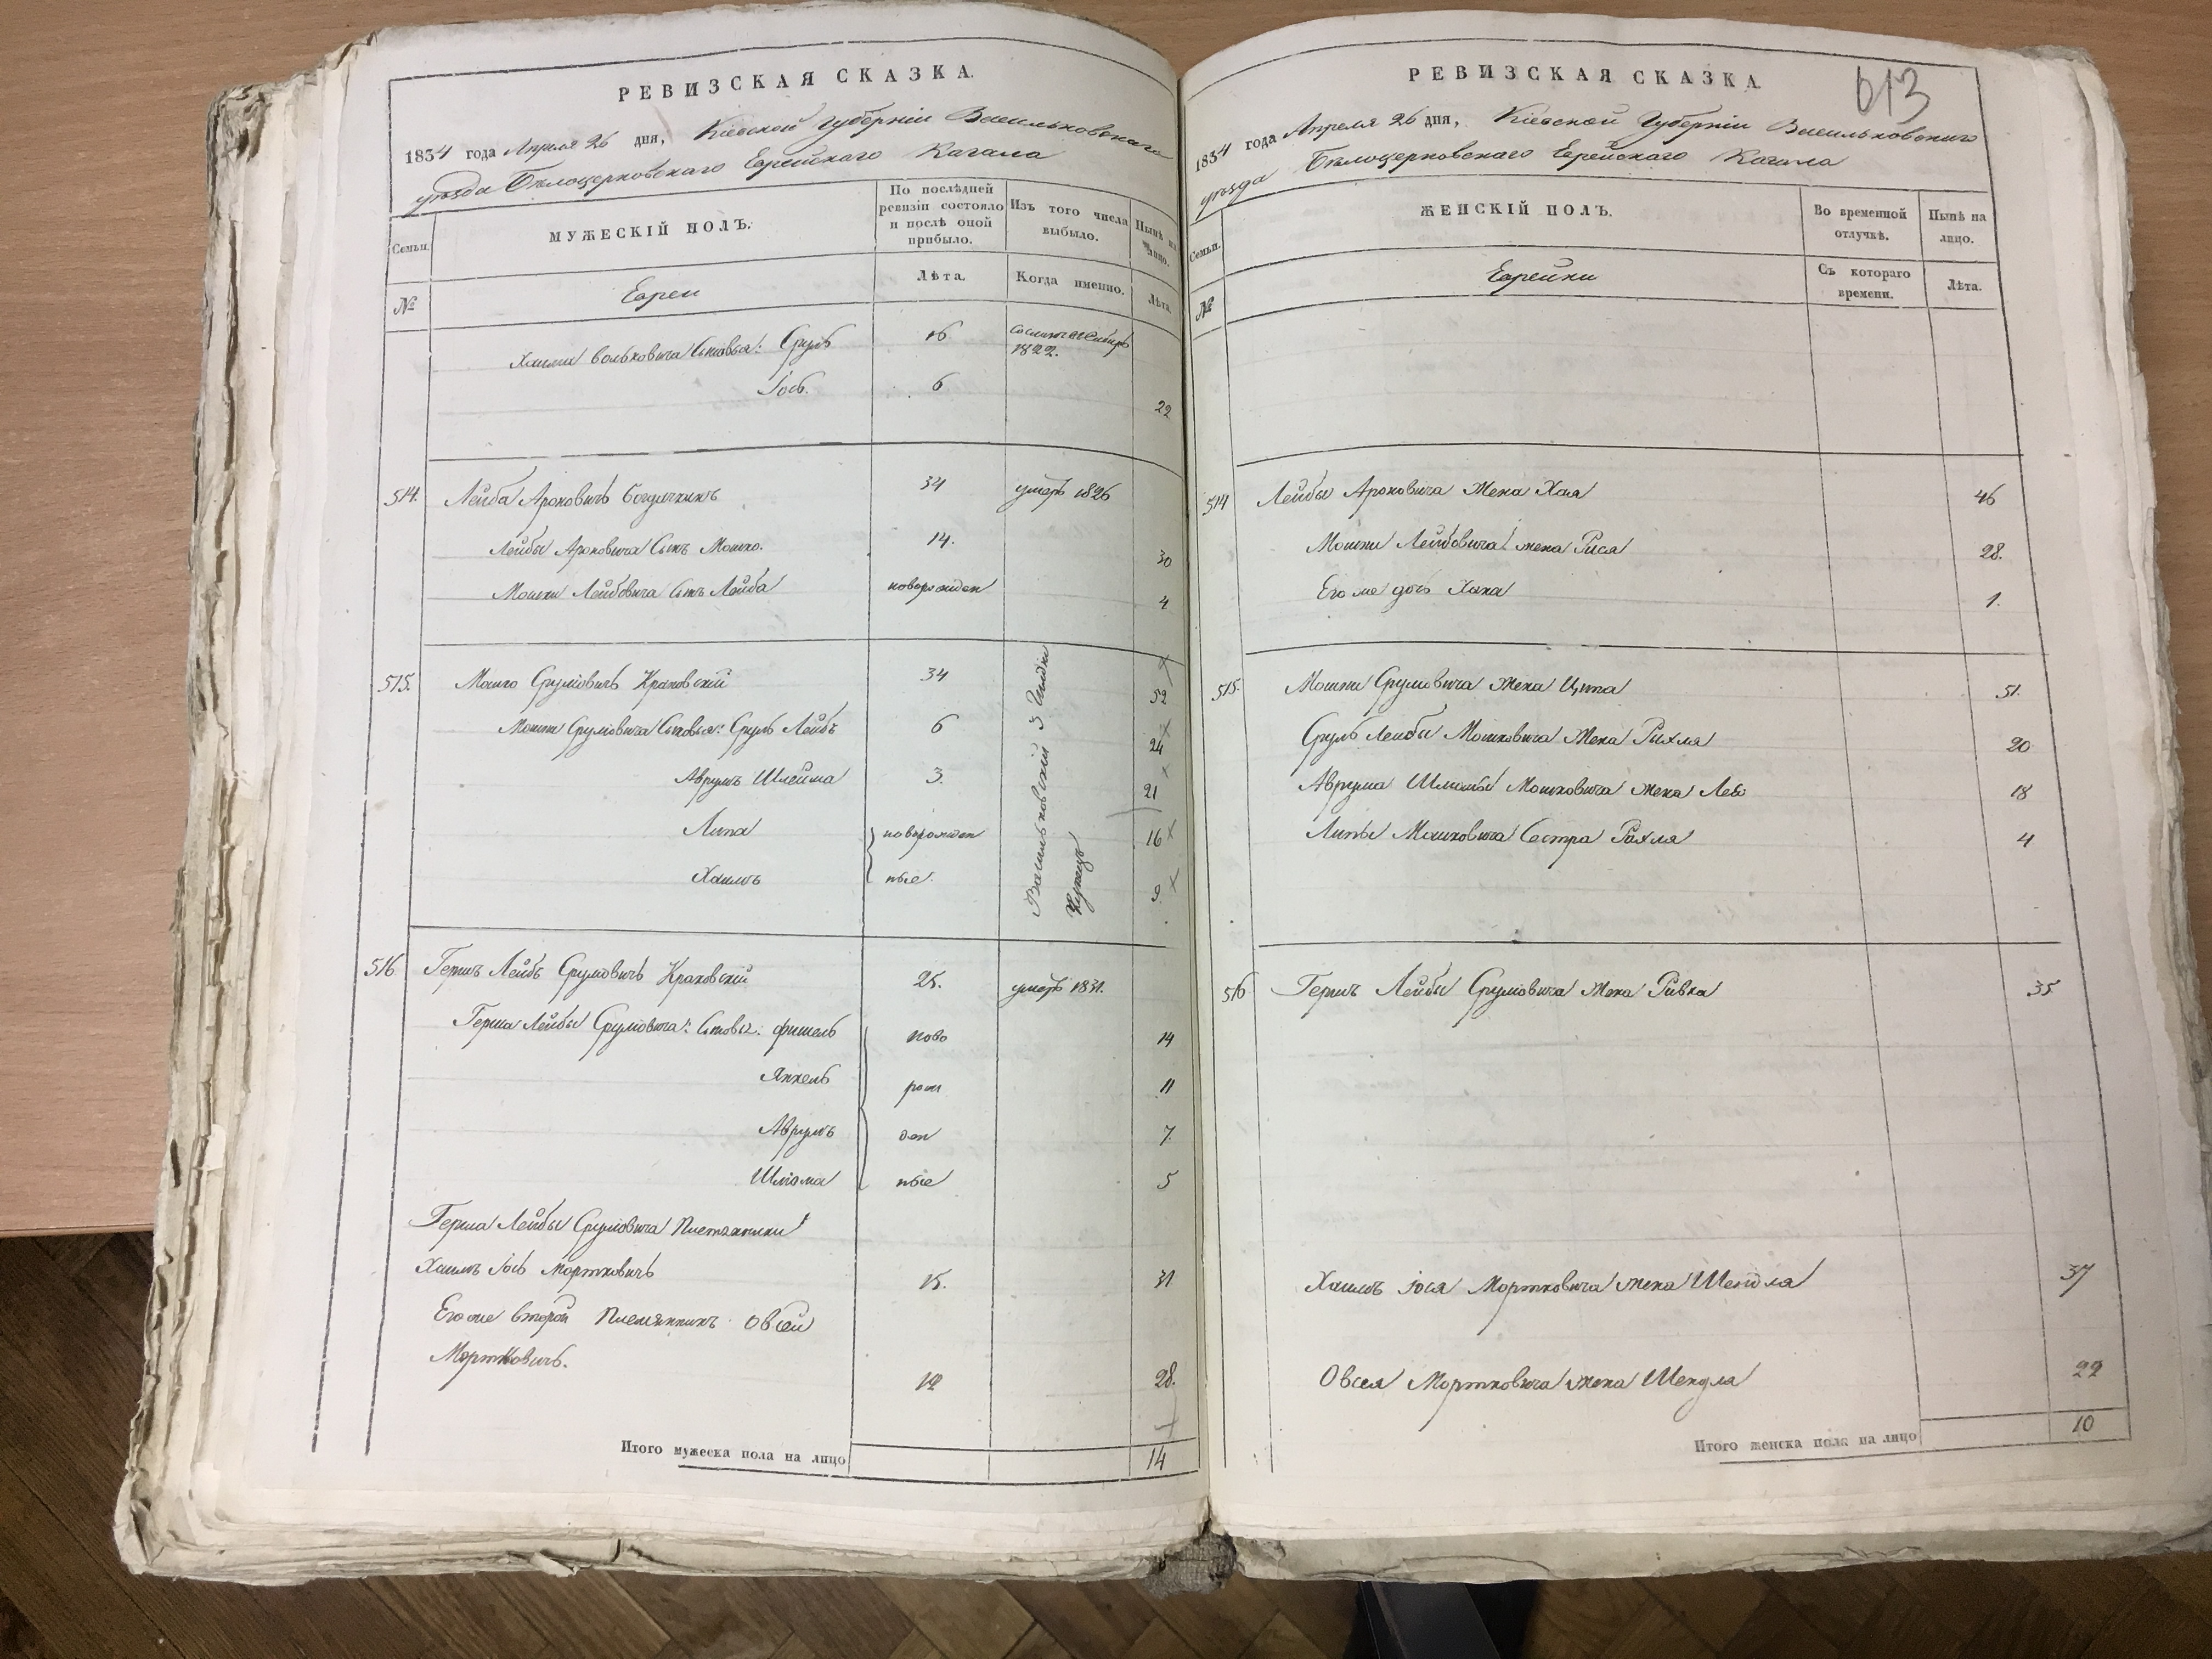 РЕВИЗСКАЯ СКАЗКА.
1834 года Апреля 26 дня, Кіевской Губерніи Васильковскаго
уѣзда Бѣлоцерковскаго Еврейскаго Кагала
Семьи.
МУЖЕСКІЙ ПОЛЪ.
По послѣдней ревизіи состояло и послѣ оной прибыло.
Изъ того числа выбыло.
Нынѣ на лицо.
№
Евреи
Лѣта.
Когда именно.
Лѣта
Хаима Вольковича Сыновья: Сруль 16 1822.
Іось. 6 22
514. Лейба Ароновичъ 34 умеръ 1826
Лейбы Ароновича Сынъ Мошко. 14. 30
Мошки Лейбовича Сынъ Лейба новорожден 4
515. Мошко Срулiовичъ Краковскій 34 52
Мошки Срулiовича Сыновья: Сруль Лейбъ 6 24
Аврумъ Шлейма 3. 21
Липа новорожден 16
Хаимъ ные. 9.
Васильковскій 3 Гилдіи
Купецъ
516. Гершъ Лейбъ Срулiовичъ Краковскій 25. умеръ 1831.
Герша Лейбы Срулiовича: Сыновья: Фишель ново 14
Янкель рож 11
Аврумъ ден 7.
Шлiома ные 5
Герша Лейбы Срулiовича Племянники
Хаимъ Іось Мортковичъ 15. 31
Его же второй Племянникъ Овсей
Мортковичъ.
12 28.
Итого мужеска пола на лицо 14
613
РЕВИЗСКАЯ СКАЗКА
1834 года Апреля 26 дня, Кіевской Губерніи Васильковскаго
уѣзда Бѣлоцерковскаго Еврейскаго Кагала
Семьи.
ЖЕНСКІЙ ПОЛЪ.
Во временной отлучкѣ.
Нынѣ на лицо.
№
Еврейки
Съ котораго времени.
Лѣта.
514 Лейбы Ароновича Жена Хая 46
Мошки Лейбовича жена Рися 28.
Его же дочь Хана 1.
515. Мошки Срулiовича Жена Ципа 51.
Сруль Лейбы Мошковича Жена Рихля 20
Аврума Шлиомы Мошковича жена Лея 18
Липы Мошковича Сестра Рахля 4
516 Гершъ Лейбы Срулiовича Жена Ривка 35
Хаимъ Iося Мортковича жена Шендля 37
Овсея Мортковича жена Шендля 22
Итого женска пола на лицо 10